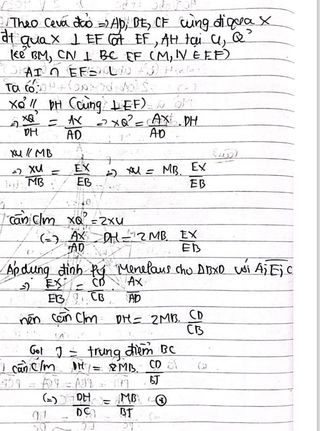 Theo Ceva đảo ⇒ AD, BE, CF cùng đi qua X
đt qua X ⊥ EF cắt EF, AH tại U, Q'
kẻ BM, CN ⊥ EF (M, N ∈ EF)
AI ∩ EF = L
Ta có:
XQ' // DH (cùng ⊥ EF)
⇒ XQ'/DH = AX/AD ⇒ XQ' = AX/AD . DH
XU // MB
⇒ XU/MB = EX/EB ⇒ XU = MB . EX/EB
Cần C/m XQ' = 2XU
(=) AX/AD . DH = 2MB . EX/EB
Áp dụng định lý Menelaus cho ΔBXD với A, E, C
⇒ EX/EB = CD/CB . AX/AD
nên cần C/m DH = 2MB . CD/CB
Gọi J = trung điểm BC
cần C/m DH = 2MB . CD/BJ
(=) DH/DC = MB/BJ ④